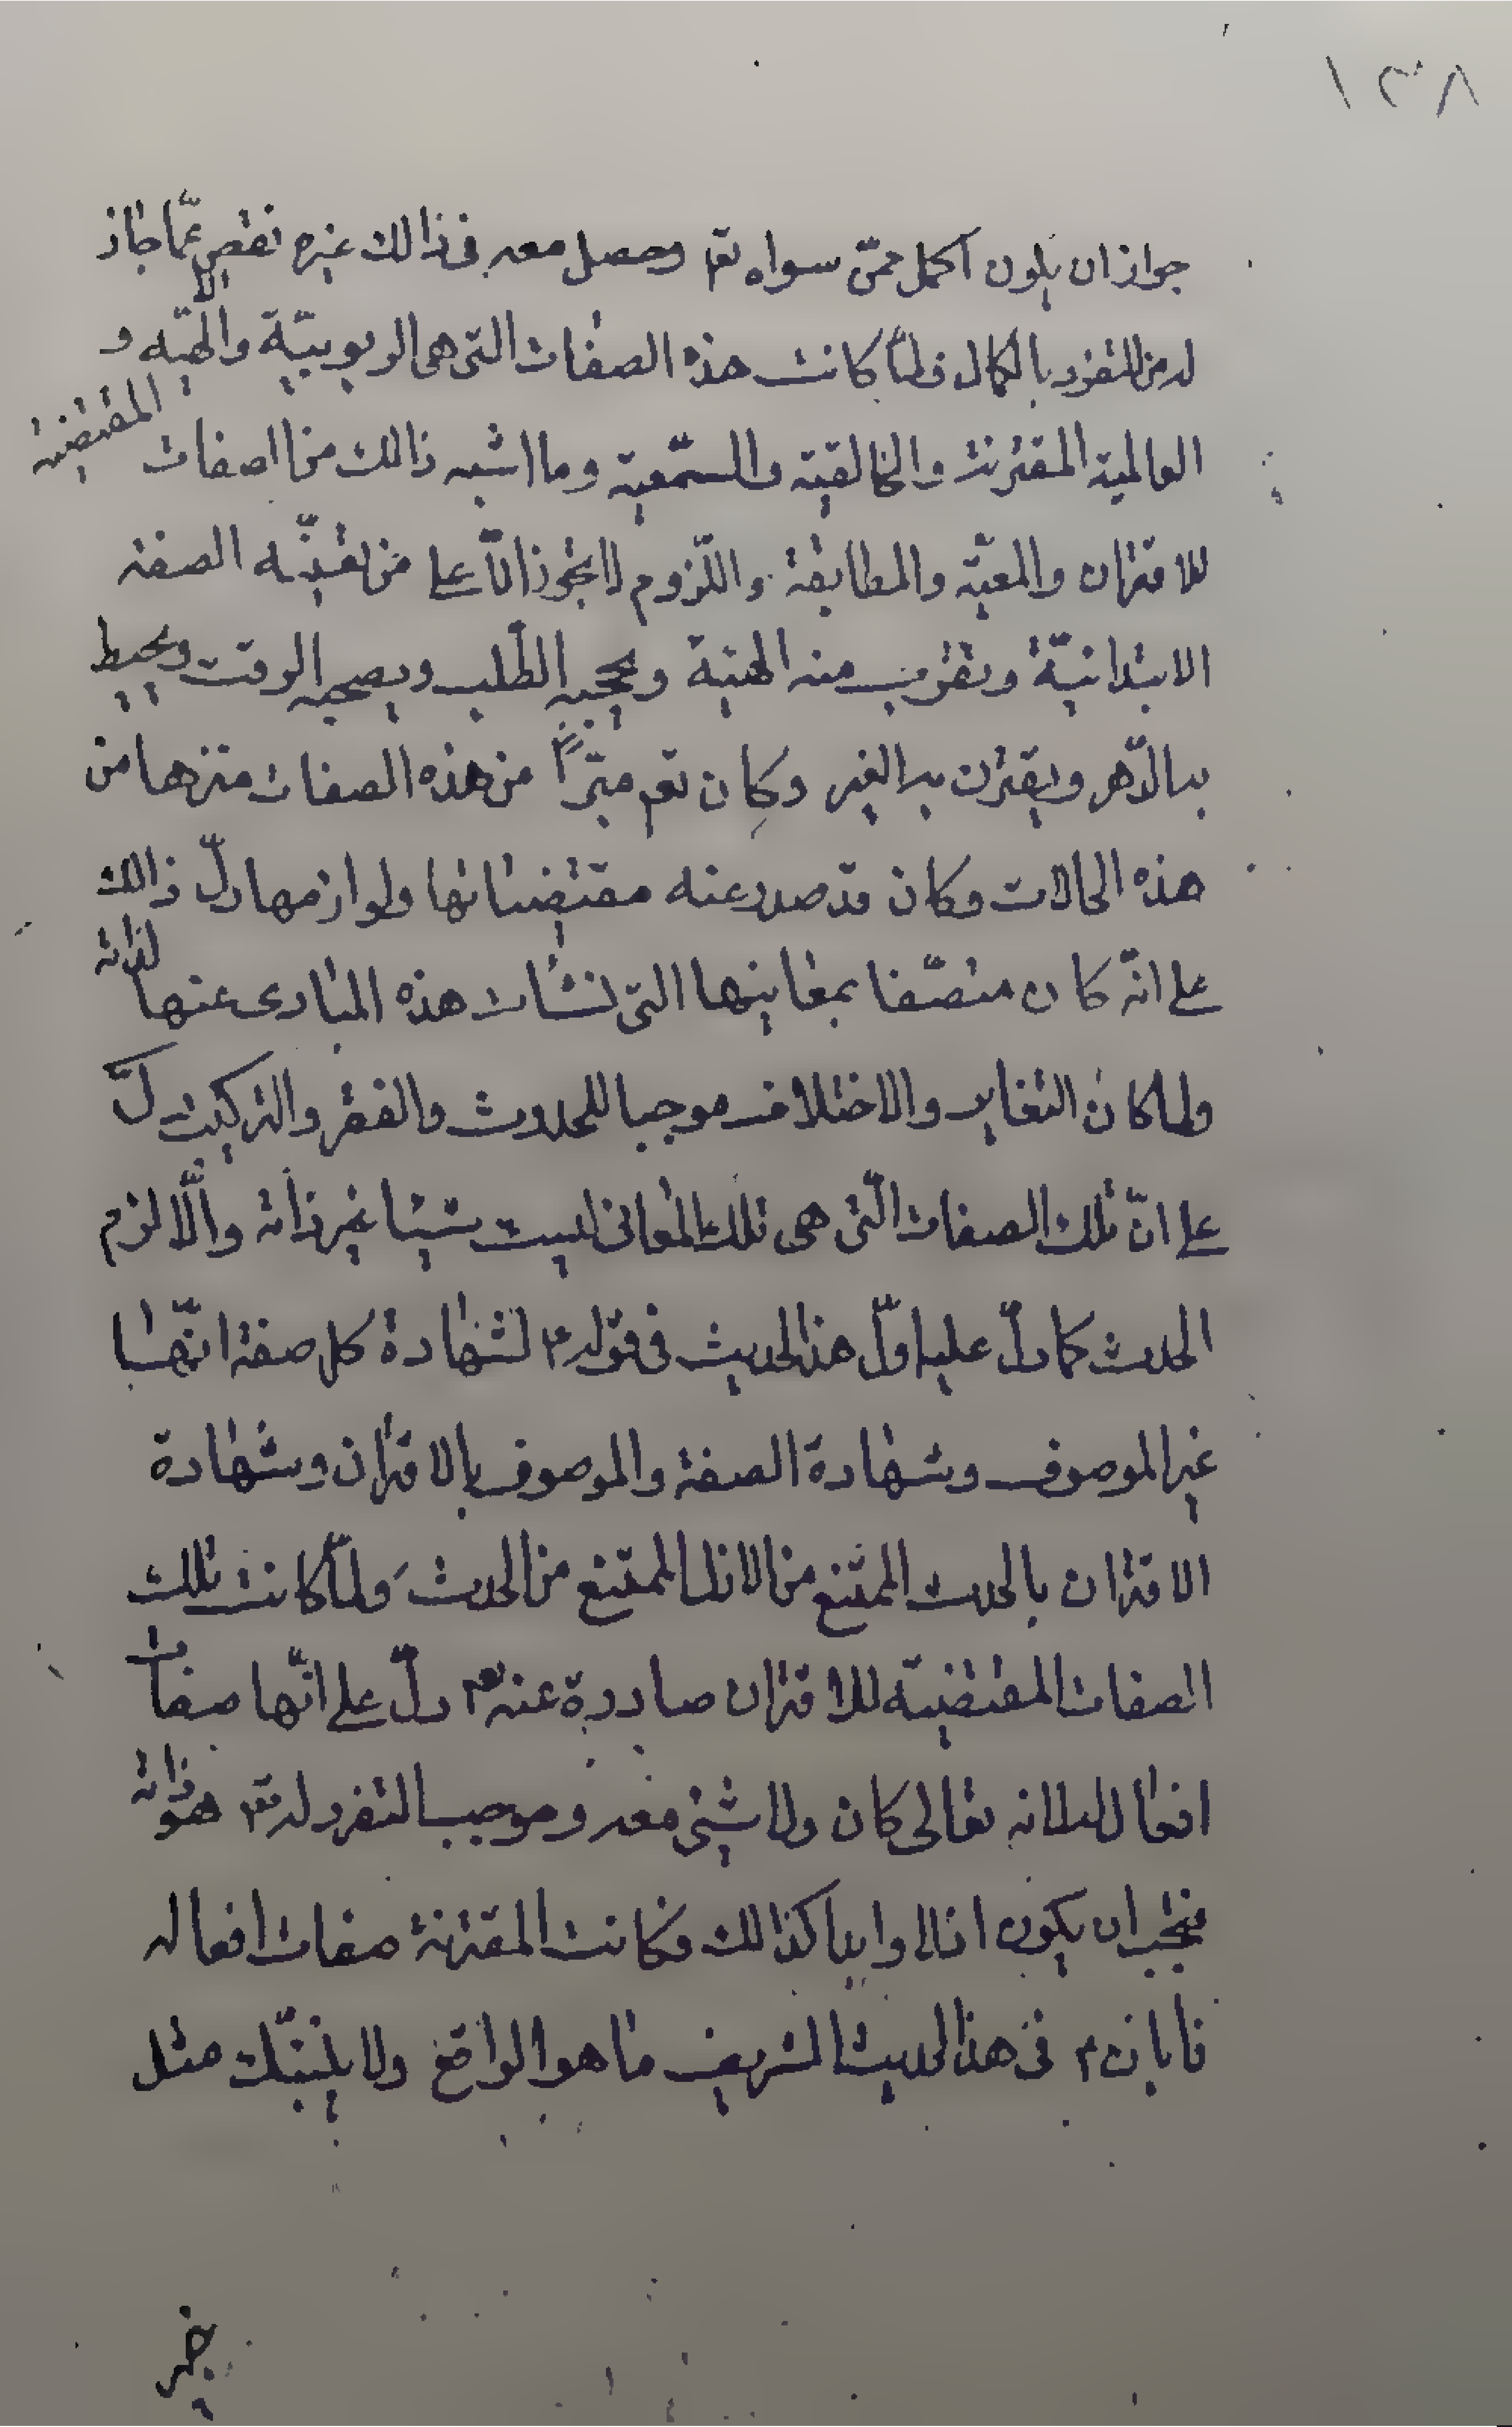 ١٣٨
جواز ان يكون اكمل ممّن سواه تع۪ وحصل معه فى ذالك غيره نقص عمّا جاز
له من التفرد بالكمال فلمّا كانت هذه الصفات التى هى الربوبيّة والالهيّه و
العالمية المقترنة والخالقيّه والسّمعيّه وما اشبه ذالك من اصفات المقتضية
للاقتران والمعيّه والمطابقة واللّزوم لا يجوز الّا على من الصفة
الابتدائيّة ويقرب منه الهيئة ويحجبه الطّلب ويصحبه الوقت ويحيط
به الدّهر ويقترن به الغير وكان تع۪ مبرّءً من هذه الصفات منزها من
هذه الحالات وكان قد صدر عنه مقتضياتها ولوازمها دلّ ذالك
على انّه كان متّصفا بمعانيها التى نشأت هذه المبادى عنها لذاته
ولما كان التغاير والاختلاف موجبا للحدوث والفقر والتركيب دلّ
على انّ تلك الصفات الّتى هى تلك المعانى ليست شيئا غير ذاته والّا لزم
الحدث كما دلّ عليه اوّل هذا الحديث فى قوله ۴ لشهادة كل صفة انّها
غير الموصوف وشهادة الصفة والموصوف بالاقتران وشهادة
الاقتران بالحدث الممتنع من الازل الممتنع من الحدث ولمّا كانت تلك
الصفات المقتضيّه للاقتران صادرة عنه تع۪ دلّ على انّها صفات
افعاله لانه تعالى كان ولا شئ معه وموجب التفرد له تع۪ هو ذاته
فيجب ان يكون ازلا وابدا كذالك فكانت المقترنة صفات افعاله
فابان ۴ فى هذا الحديث الشريف ما هو الواقع ولا ينبئك مثل
خبير